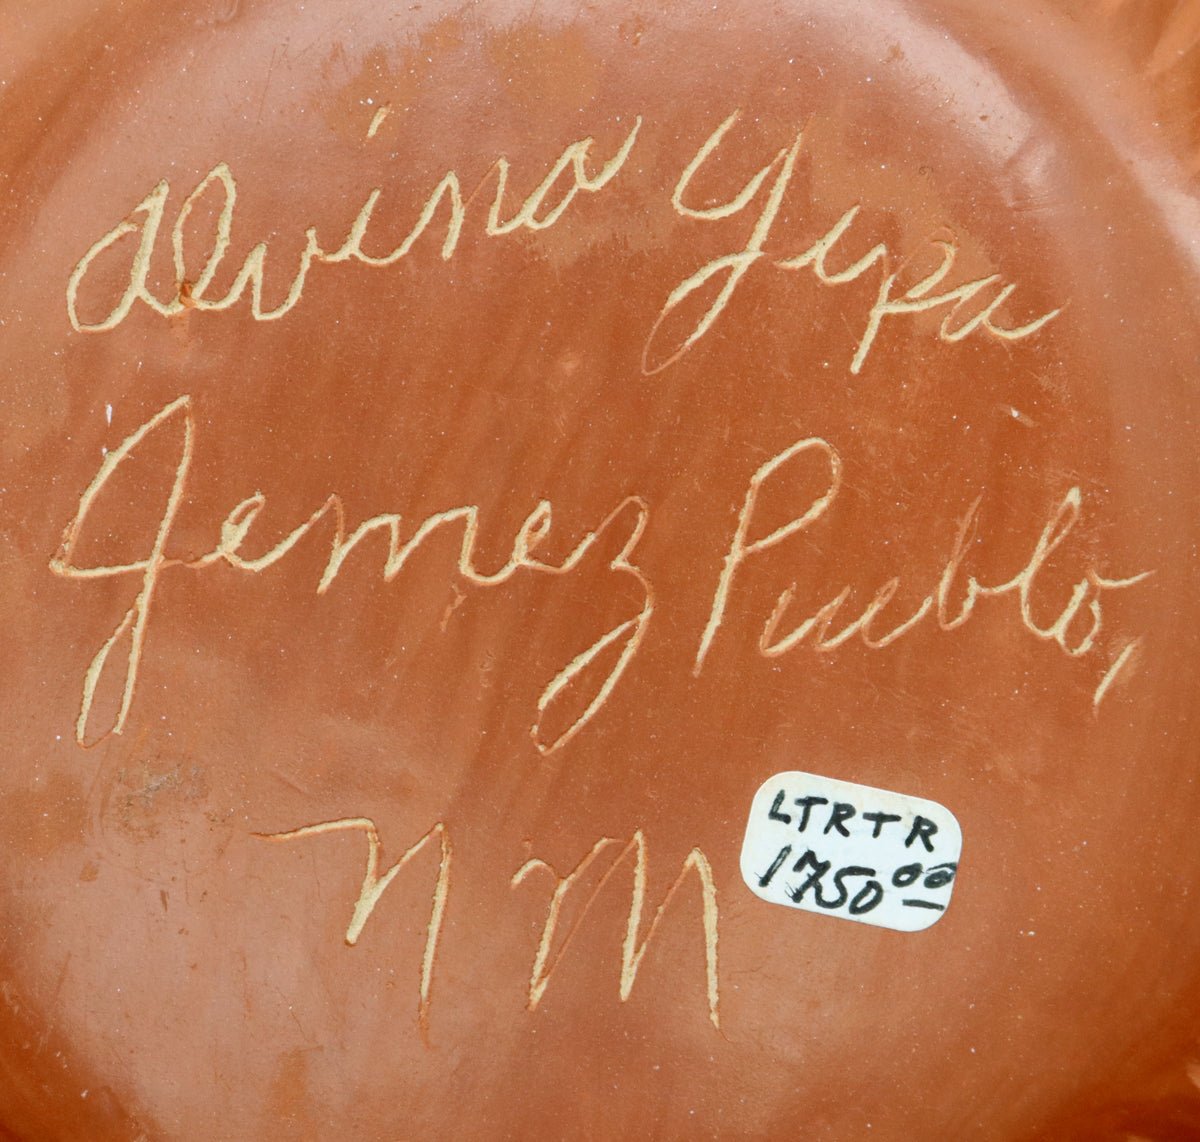 Alvina Yepa
Jemez Pueblo,
NM
LTRTR
1750.00